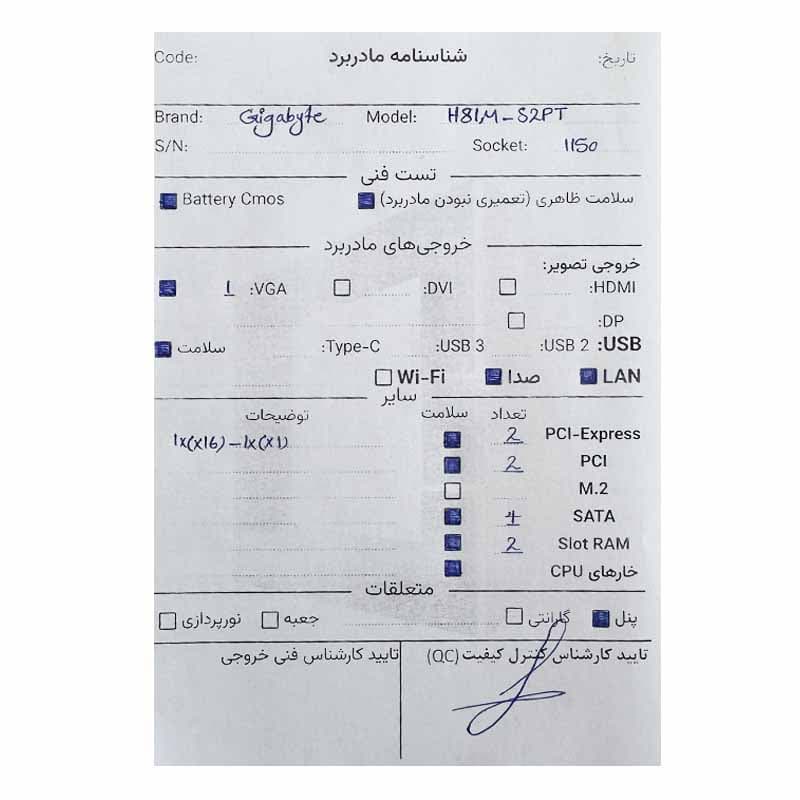 تاریخ: شناسنامه مادربرد Code:
Brand: Gigabyte Model: H81M-S2PT
S/N: Socket: 1150
تست فنی
سلامت ظاهری (تعمیری نبودن مادربرد) Battery Cmos
خروجی‌های مادربرد
خروجی تصویر:
HDMI: DVI: VGA: 1
DP:
USB: USB 2: USB 3: Type-C: سلامت
LAN صدا Wi-Fi
سایر
تعداد سلامت توضیحات
PCI-Express 2 1x(x16)-1x(x1)
PCI 2
M.2
SATA 4
Slot RAM 2
خارهای CPU
متعلقات
پنل گارانتی جعبه نورپردازی
تایید کارشناس کنترل کیفیت (QC) تایید کارشناس فنی خروجی